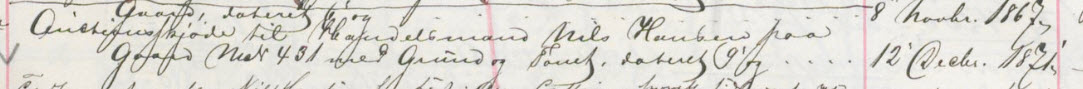 Gaard, dateret 6 og 8 Novbr. 1867,
Auctionsskjøde til Handelsmand Nils Hansen paa
Gaard Matr 431 med Grund og Tomt, dateret 9 og . . . . 12 Decbr. 1871,